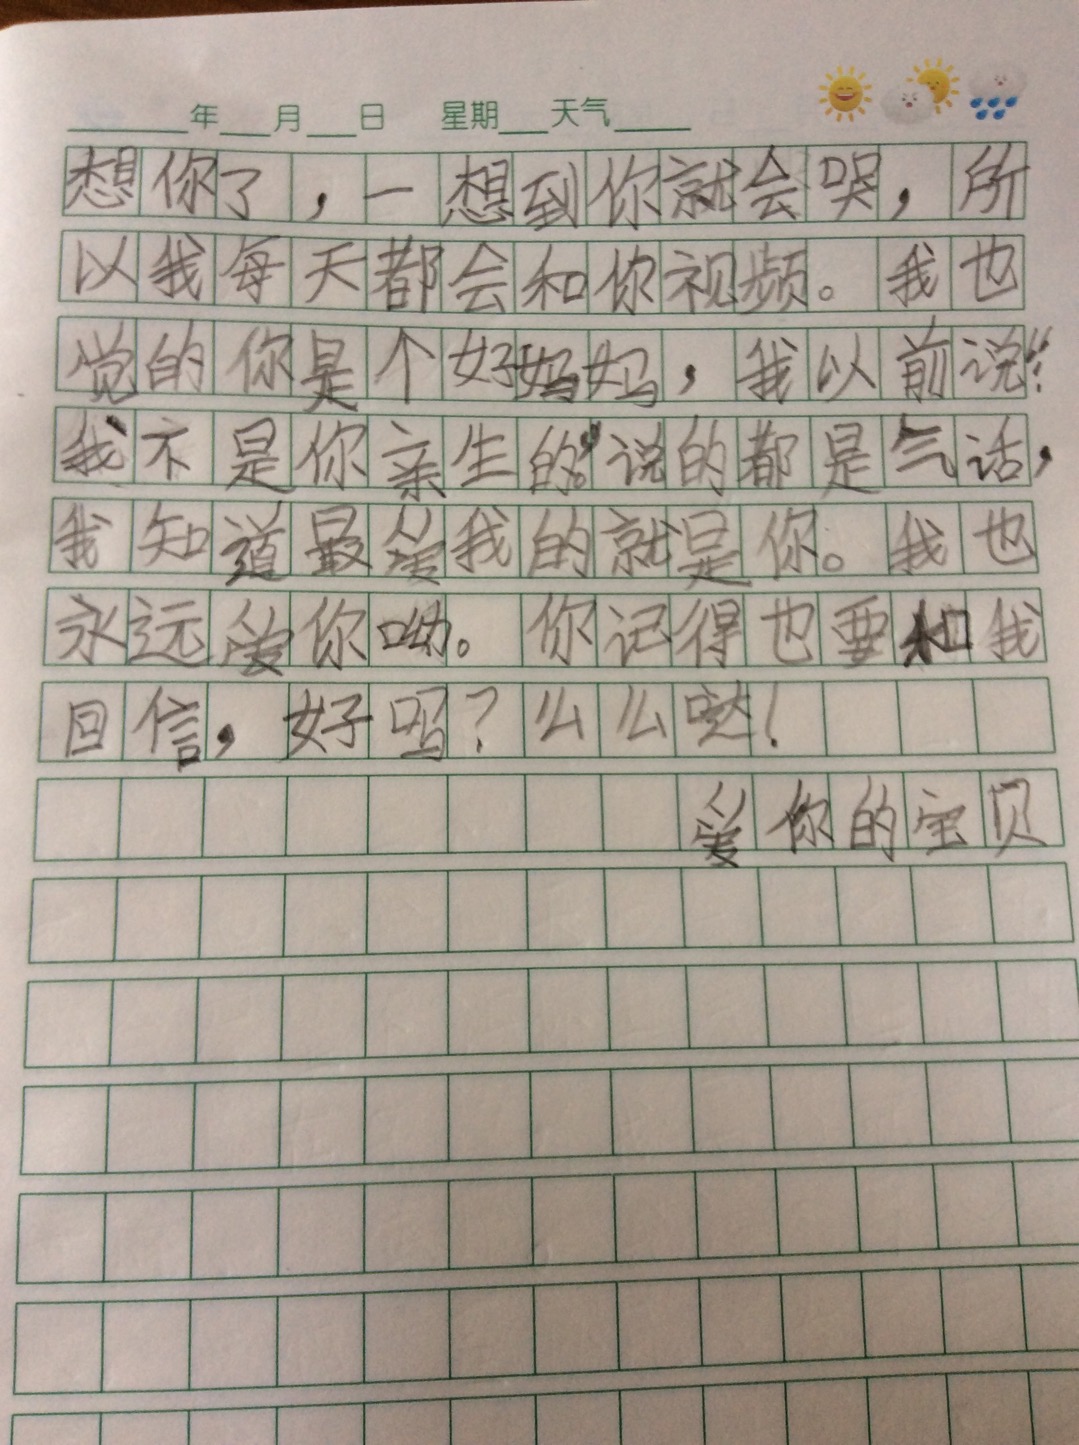 年 月 日 星期 天气
想你了，一想到你就会哭，所
以我每天都会和你视频。我也
觉的你是个好妈妈，我以前说：“
我不是你亲生的。”说的都是气话，
我知道最爱我的就是你。我也
永远爱你呦。你记得也要和我
回信，好吗？么么哒！
爱你的宝贝